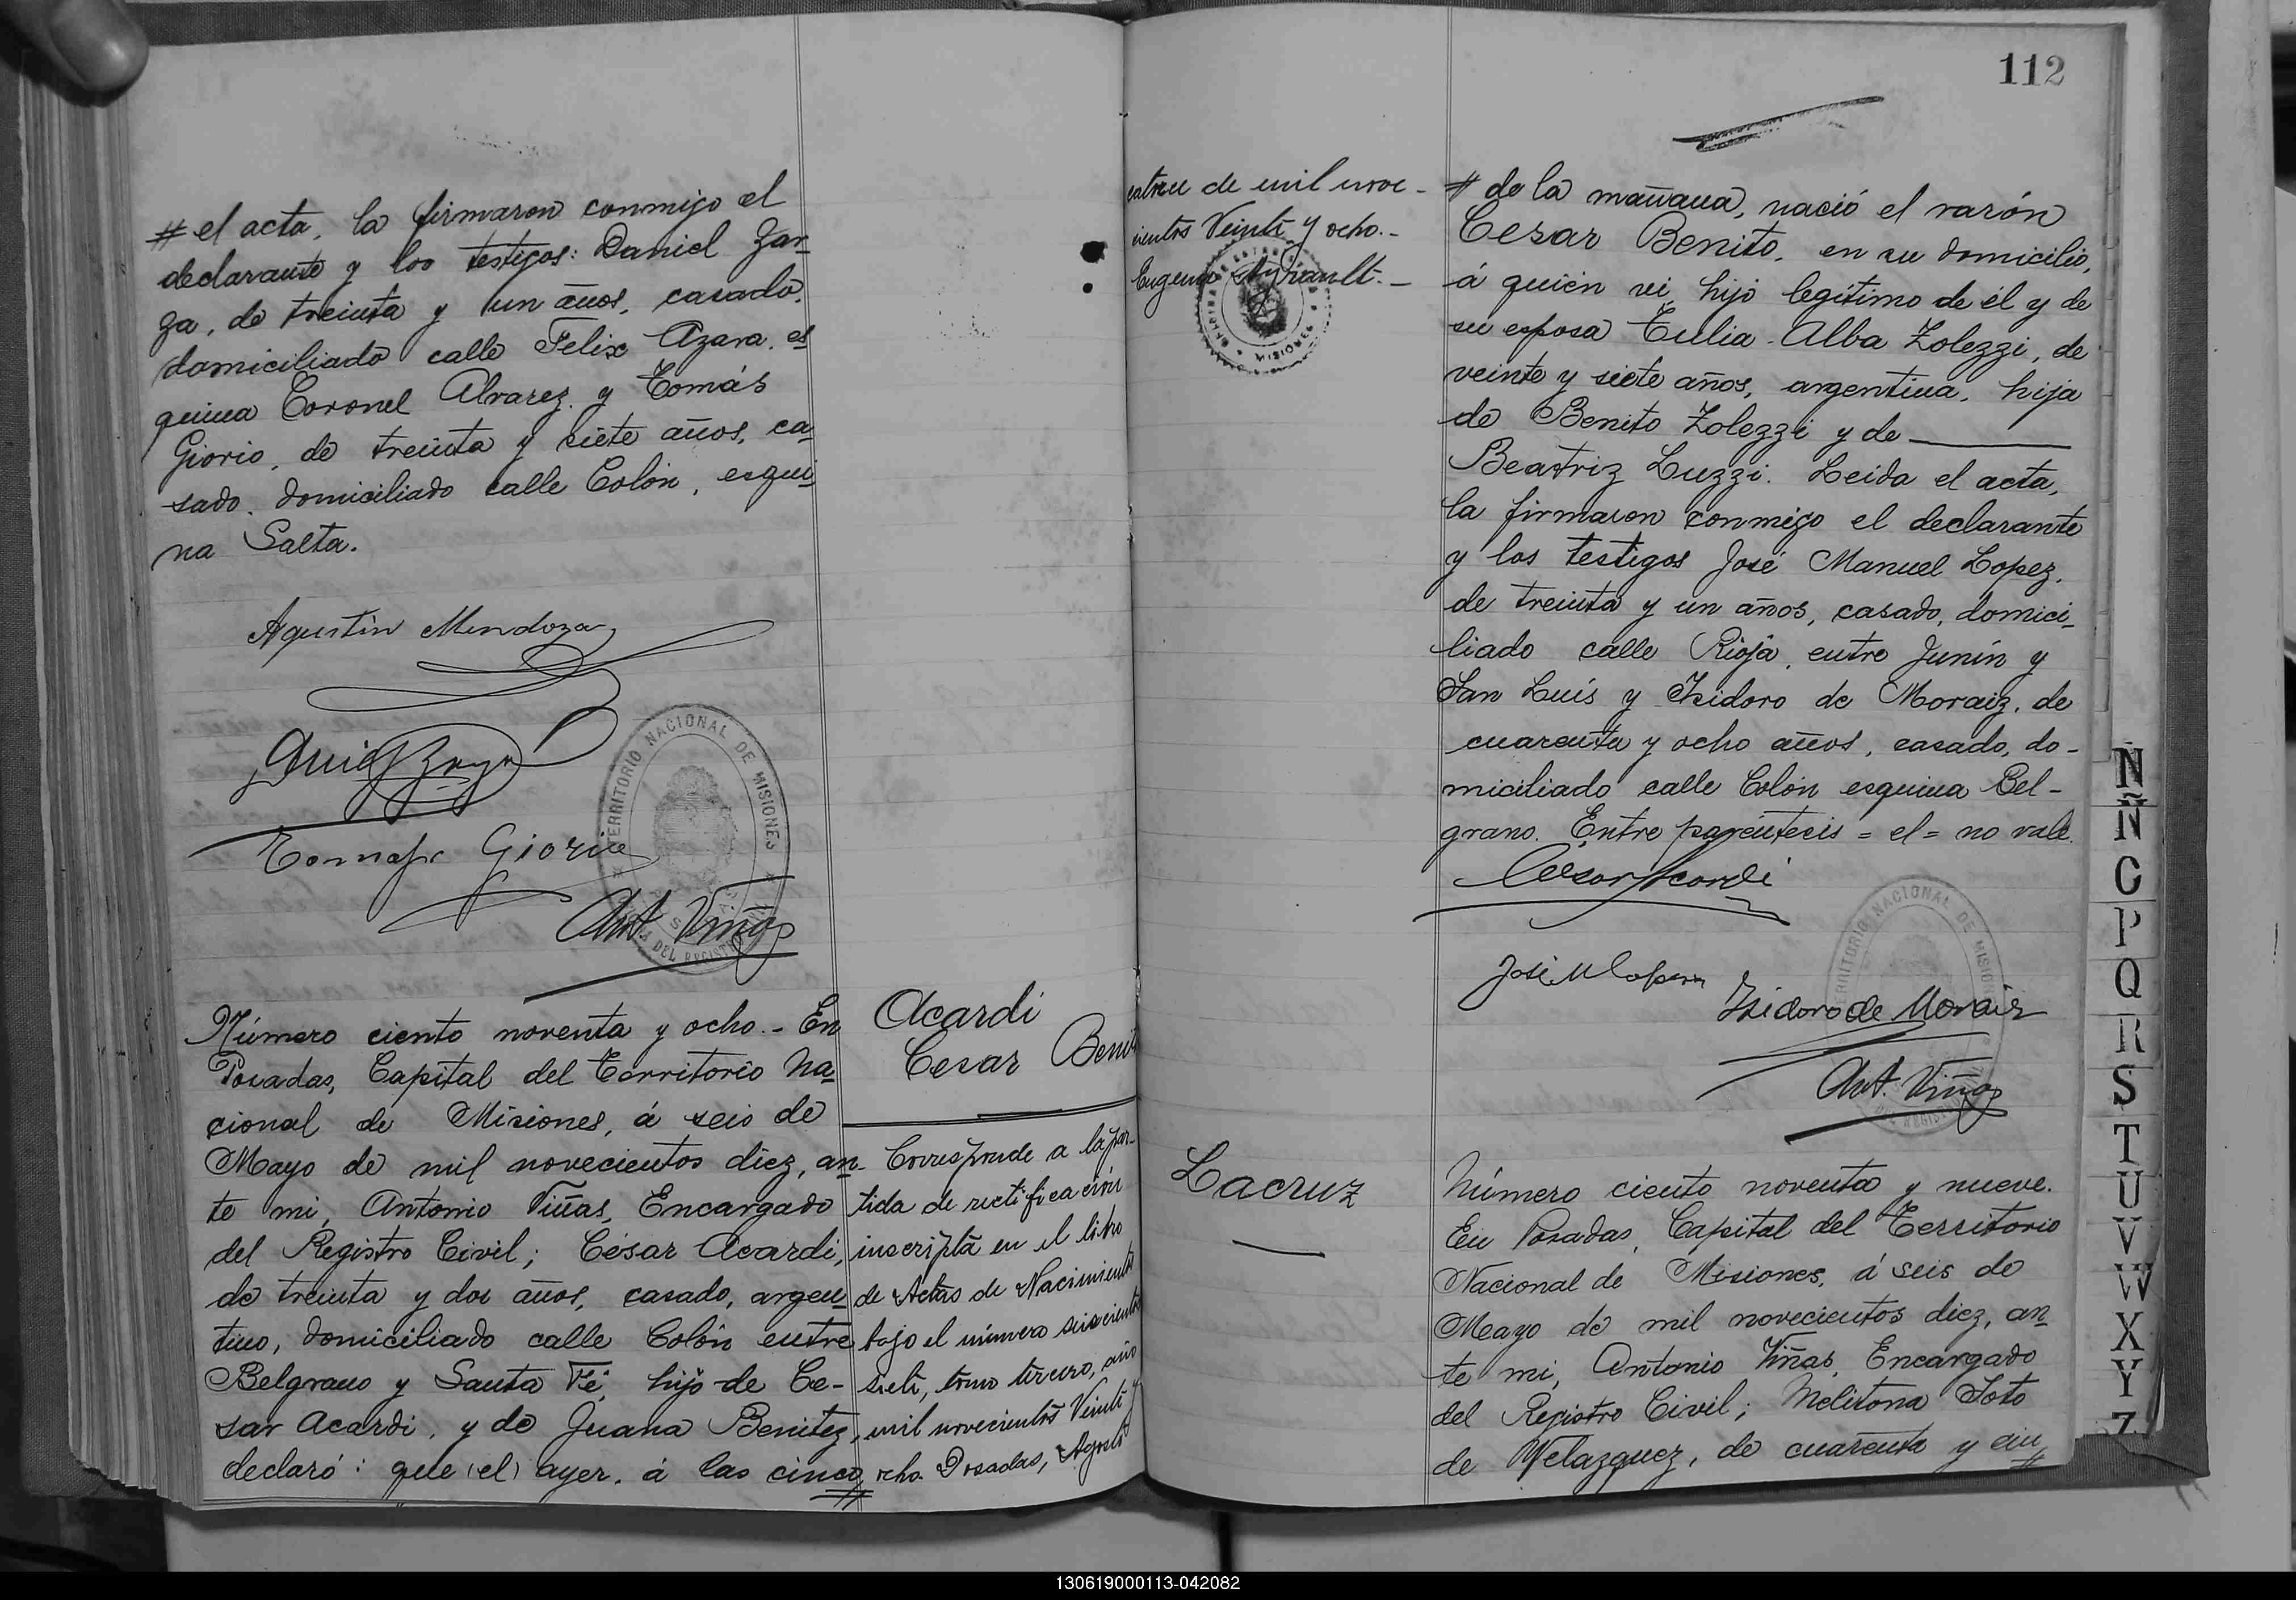 # el acta, la firmaron conmigo el
declarante y los testigos: Daniel Zar-
za, de treinta y un años, casado,
domiciliado calle Felix Azara, es
quina Coronel Alvarez y Tomás
Giorio, de treinta y siete años, ca-
sado, domiciliado calle Colón, esqui-
na Salta.
Agustin Mendoza
Tomas Giorio
TERRITORIO NACIONAL DE MISIONES
Ant. Viñas
Número ciento noventa y ocho.- En
Posadas, Capital del Territorio Na-
cional de Misiones, á seis de
Mayo de mil novecientos diez, an-
te mi, Antonio Viñas, Encargado
del Registro Civil; César Acardi,
de treinta y dos años, casado, argen-
tino, domiciliado calle Colón entre
Belgrano y Santa Fé, hijo de Ce-
sar Acardi, y de Juana Benitez,
declaró: que (el) ayer, á las cinco #
Acardi
Cesar Benito
Corresponde a la par-
tida de rectificación
inscripta en el libro
de Actas de Nacimientos
bajo el número seiscientos
siete, tomo tercero, año
mil novecientos Veinte y
ocho. Posadas, Agosto
catorce de mil nove-
cientos Veinte y ocho.-
MISIONES
112
# de la mañana, nació el varón
Cesar Benito, en su domicilio,
á quien vi, hijo legitimo de él y de
su esposa Tulia Alba Zolezzi, de
veinte y siete años, argentina, hija
de Benito Zolezzi y de
Beatriz Luzzi. Leida el acta,
la firmaron conmigo el declarante
y los testigos José Manuel Lopez,
de treinta y un años, casado, domici-
liado calle Rioja, entre Junín y
San Luís y Isidoro de Moraiz, de
cuarenta y ocho años, casado, do-
miciliado calle Colón esquina Bel-
grano. Entre paréntecis = el = no vale.
Cesar Acardi
José M Lopez
Isidoro de Moraiz
TERRITORIO NACIONAL DE MISIONES
Ant. Viñas
Lacruz
Número ciento noventa y nueve.
En Posadas, Capital del Territorio
Nacional de Misiones, á seis de
Mayo de mil novecientos diez, an-
te mi, Antonio Viñas, Encargado
del Registro Civil; Melitona Soto
de Velazquez, de cuarenta y cin #
N
Ñ
P
Q
R
S
T
U
V
W
X
Y
Z
130619000113-042082